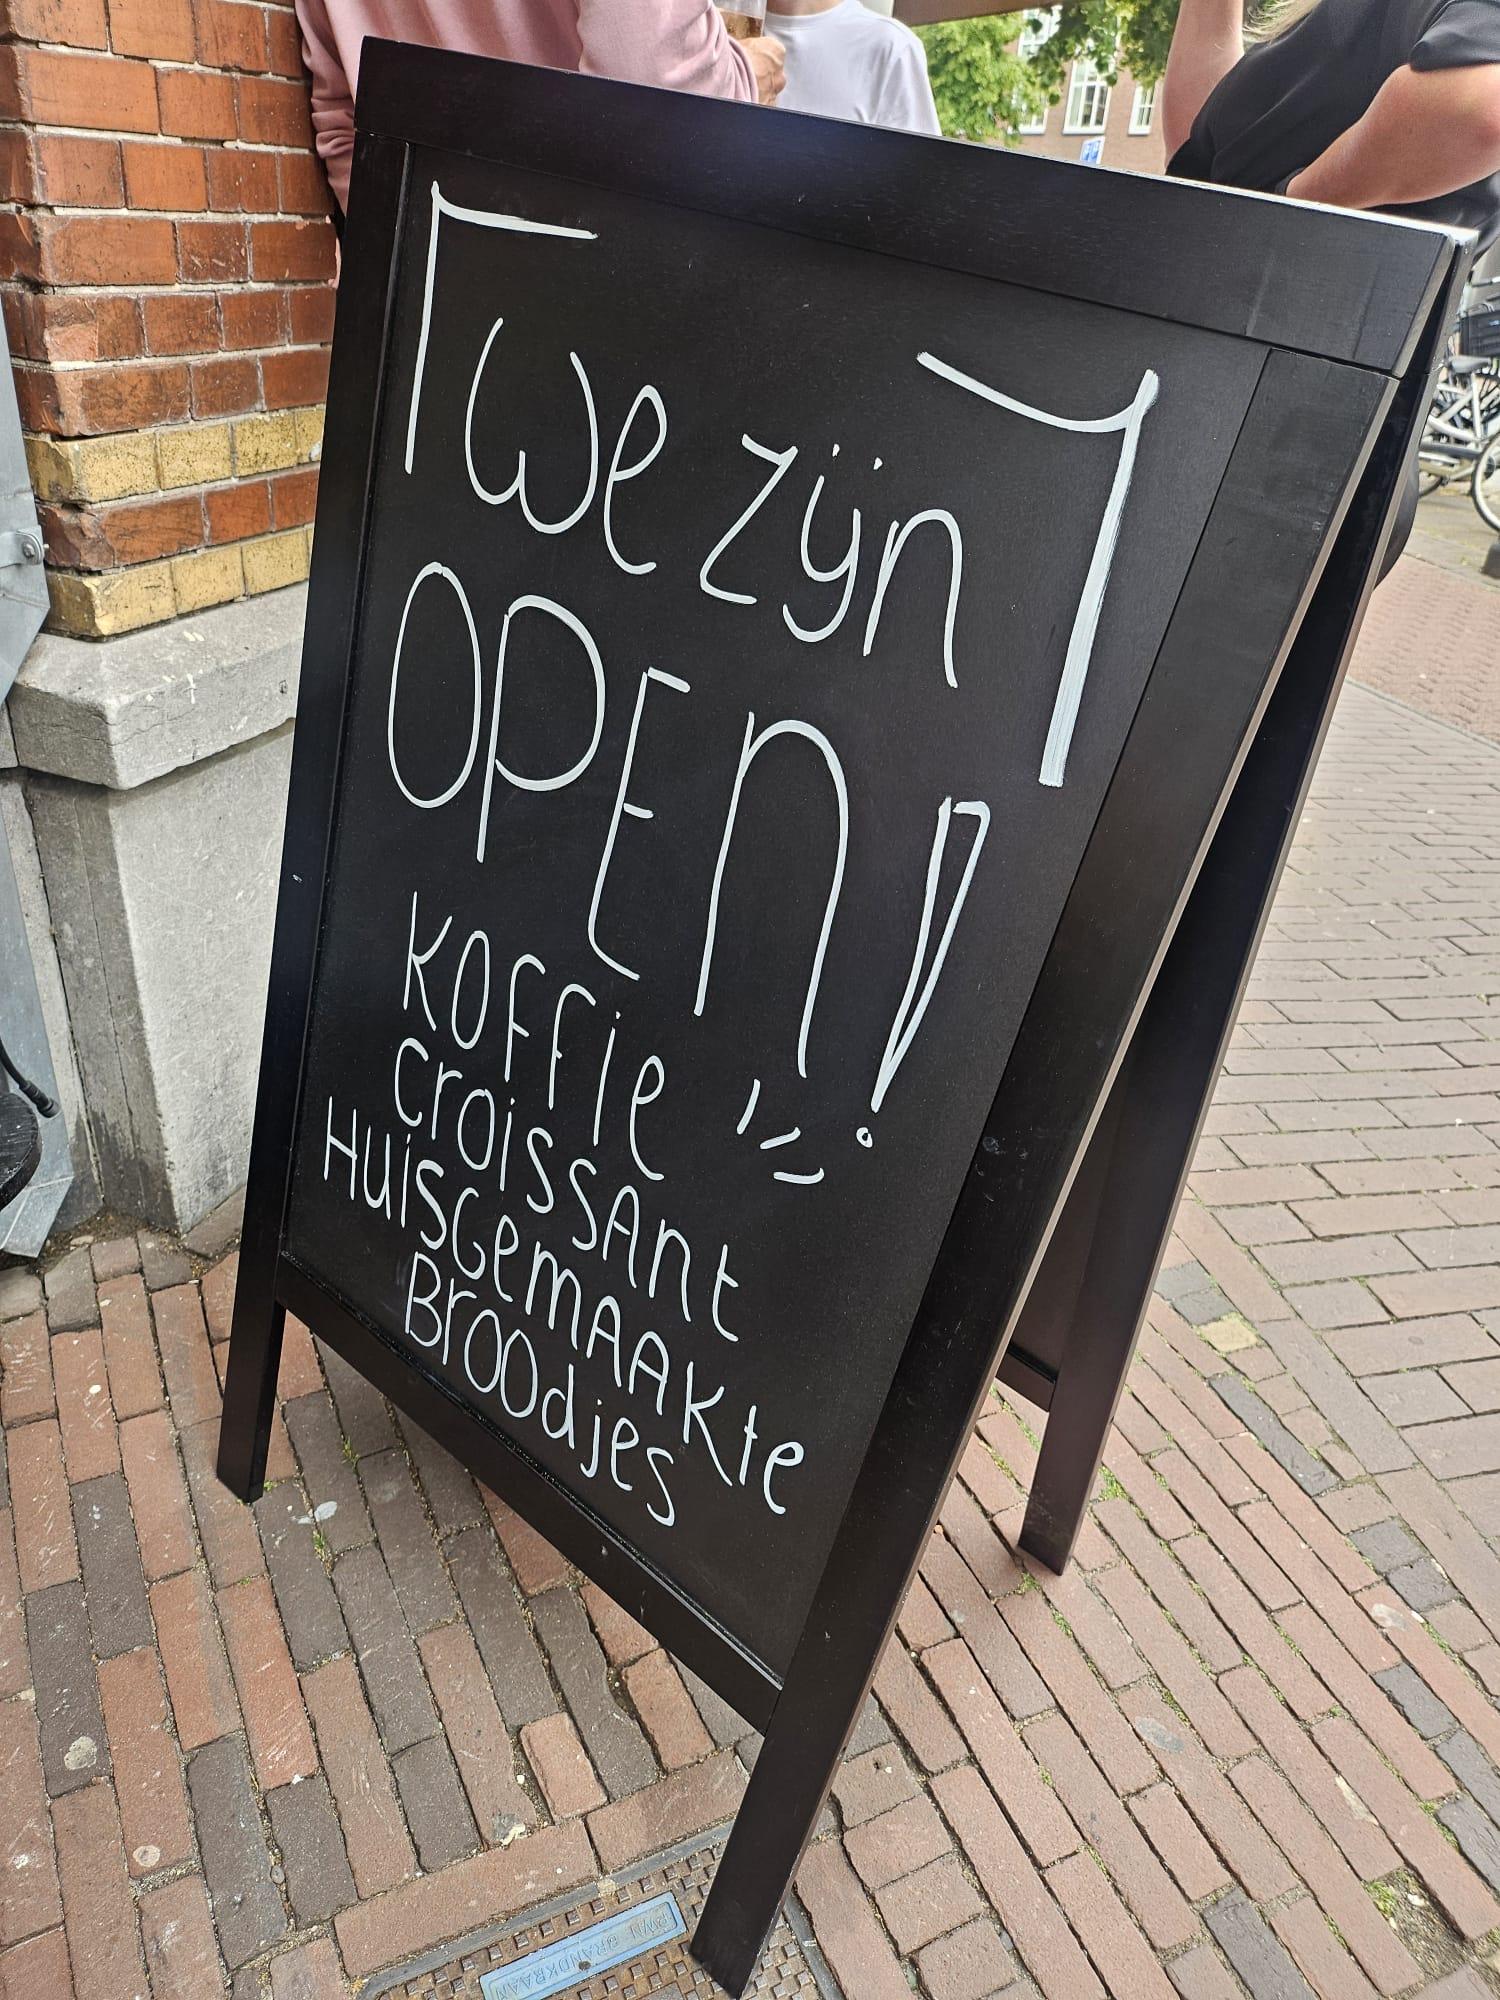 we zijn
OPEN!
KOFFIE
croissAnt
HuisGemAAKte
BrOOdjes
PWN BRANDKRAAN